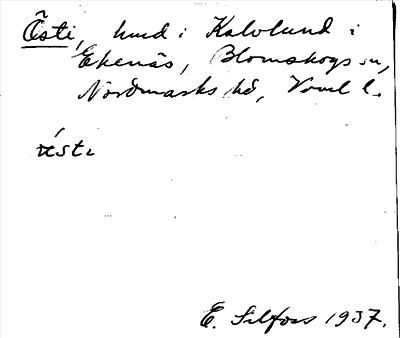 Östi, hmd i Kalvlund i
Ekenäs, Blomskogs sn,
Nordmarks hd, Vrml l.
ústi
E. Silfors 1937.